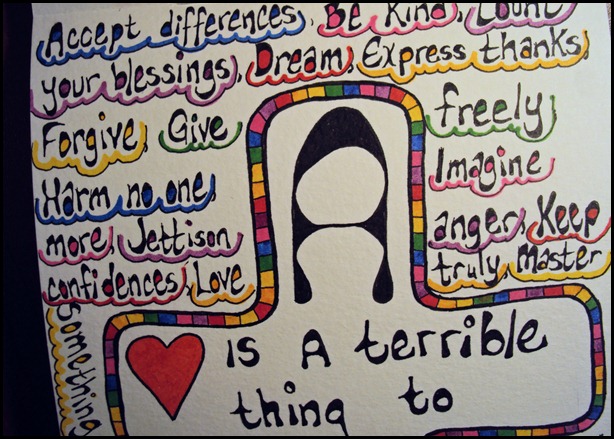 Accept differences, Be Kind, Count
your blessings, Dream, Express thanks,
Forgive, Give freely
Harm no one, Imagine
more, Jettison anger, Keep
confidences, Love truly, Master
Something
A
is A terrible
thing to